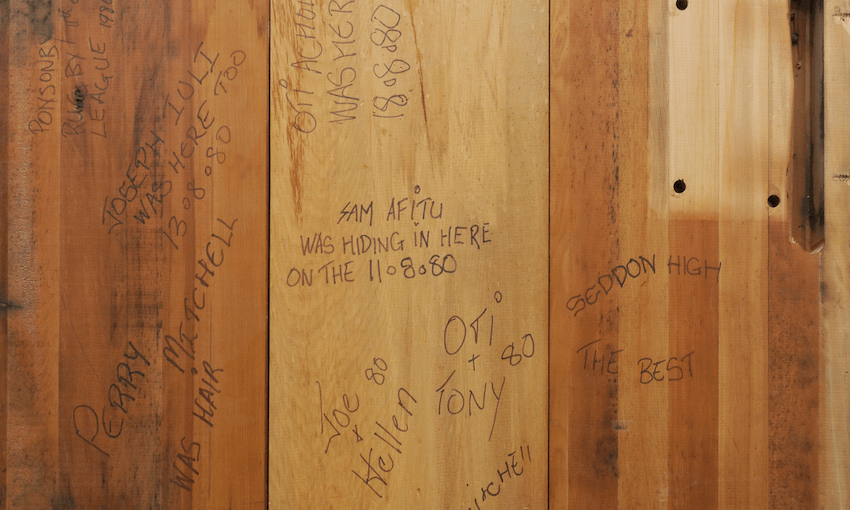 PONSONBY
RUGBY
LEAGUE 1980
JOSEPH IULI
WAS HERE TOO
13.08.80
PERRY MITCHELL
WAS HAIR
OTI ACHUI
WAS HERE
18.8.80
SAM AFITU
WAS HIDING IN HERE
ON THE 11.8.80
OTI
+ 80
TONY
Joe 80
&
Hellen
MITCHEll
SEDDON HIGH
THE BEST